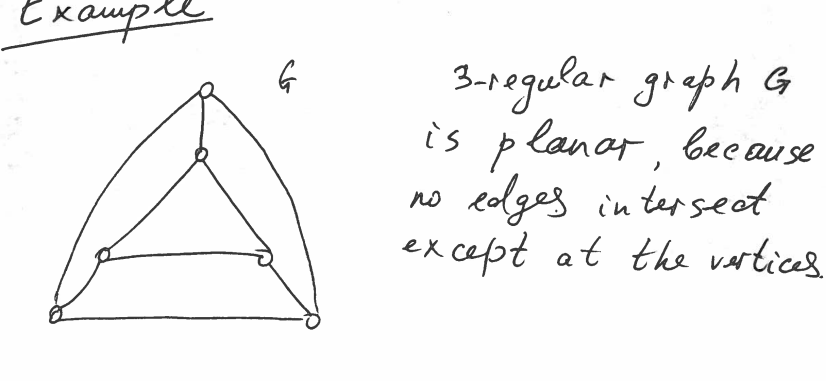 Example
G
3-regular graph G
is planar, because
no edges intersect
except at the vertices.